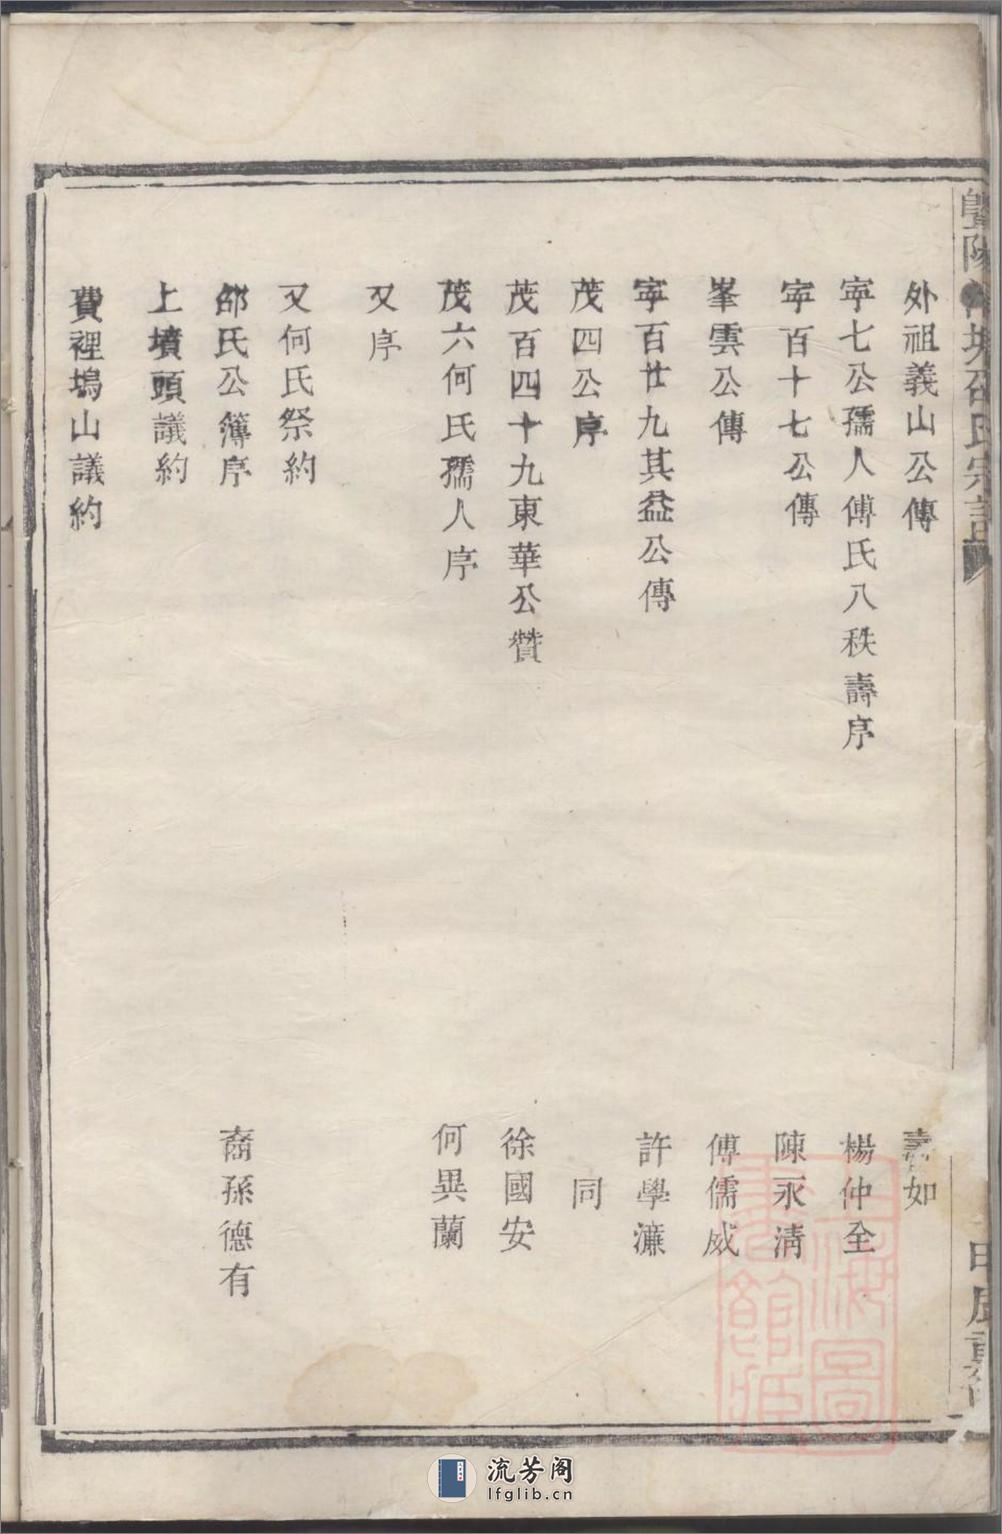 暨陽 塘邵氏宗譜
甲辰重修
外祖義山公傳 壽如
寜七公孺人傅氏八秩壽序 楊仲全
寜百十七公傳 陳永清
峯雲公傳 傅儒威
寜百廿九其益公傳 許學濂
茂四公序 同
茂百四十九東華公贊 徐國安
茂六何氏孺人序 何異蘭
又序
又何氏祭約
邵氏公簿序 裔孫德有
上墳頭議約
費裡塢山議約
上海圖書館藏
流芳阁
lfglib.cn